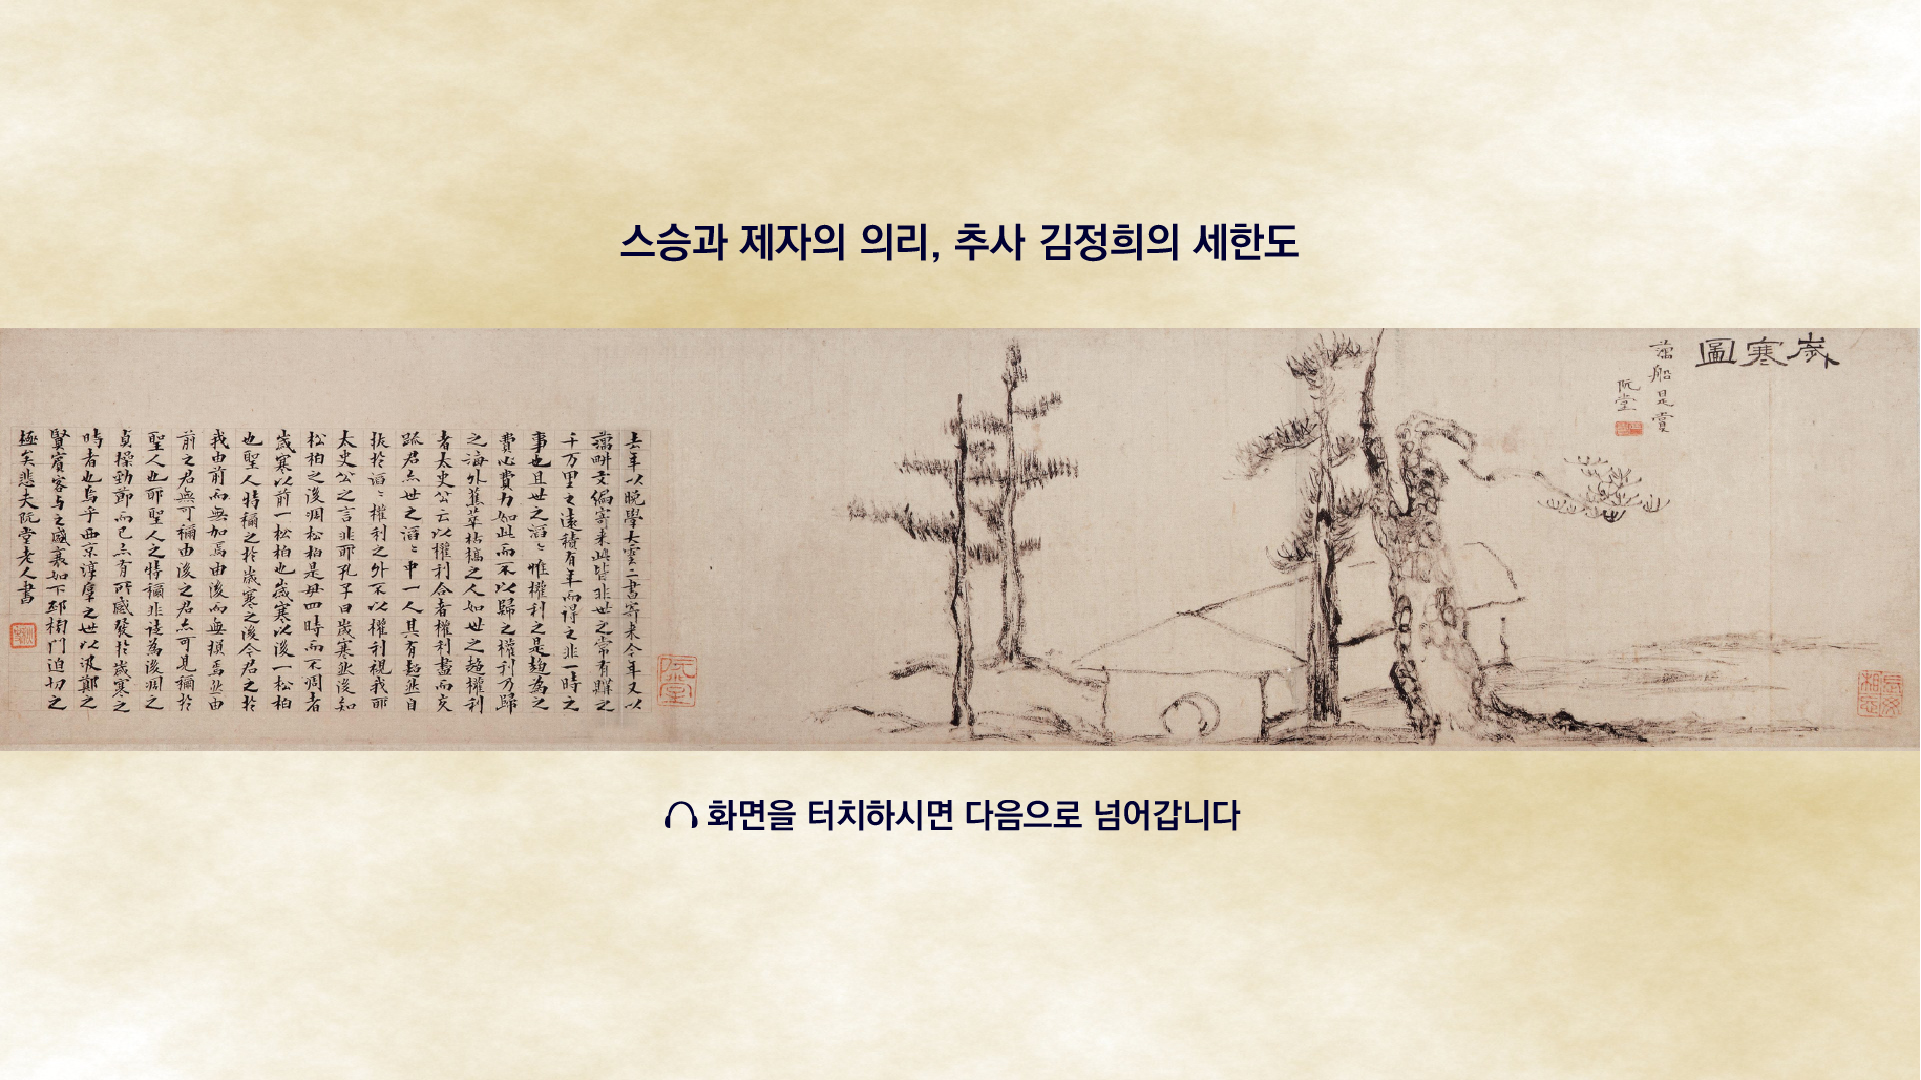 스승과 제자의 의리, 추사 김정희의 세한도
歲寒圖
藕船是賞
阮堂
長毋相忘
阮堂
去年以晚學大雲二書寄來今年又以
藕畊文編寄來此皆非世之常有購之
千万里之遠積有年而得之非一時之
事也且世之滔〻惟權利之是趨為之
費心費力如此而不以歸之權利乃歸
之海外蕉萃枯槁之人如世之趨權利
者太史公云以權利合者權利盡而交
踈君亦世之滔〻中一人其有超然自
拔於滔〻權利之外不以權利視我耶
太史公之言非耶孔子曰歲寒然後知
松栢之後凋松栢是毋四時而不凋者
歲寒以前一松栢也歲寒以後一松栢
也聖人特稱之於歲寒之後今君之於
我由前而無加焉由後而無損焉然由
前之君無可稱由後之君亦可見稱於
聖人也耶聖人之特稱非徒為後凋之
貞操勁節而已亦有所感發於歲寒之
時者也烏乎西京淳厚之世以汲鄭之
賢賓客与之盛衰如下邳榜門迫切之
極矣悲夫阮堂老人書
화면을 터치하시면 다음으로 넘어갑니다